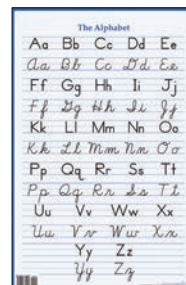 The Alphabet
Aa Bb Cc Dd Ee
Aa Bb Cc Dd Ee
Ff Gg Hh Ii Jj
Ff Gg Hh Ii Jj
Kk Ll Mm Nn Oo
Kk Ll Mm Nn Oo
Pp Qq Rr Ss Tt
Pp Qq Rr Ss Tt
Uu Vv Ww Xx
Uu Vv Ww Xx
Yy Zz
Yy Zz